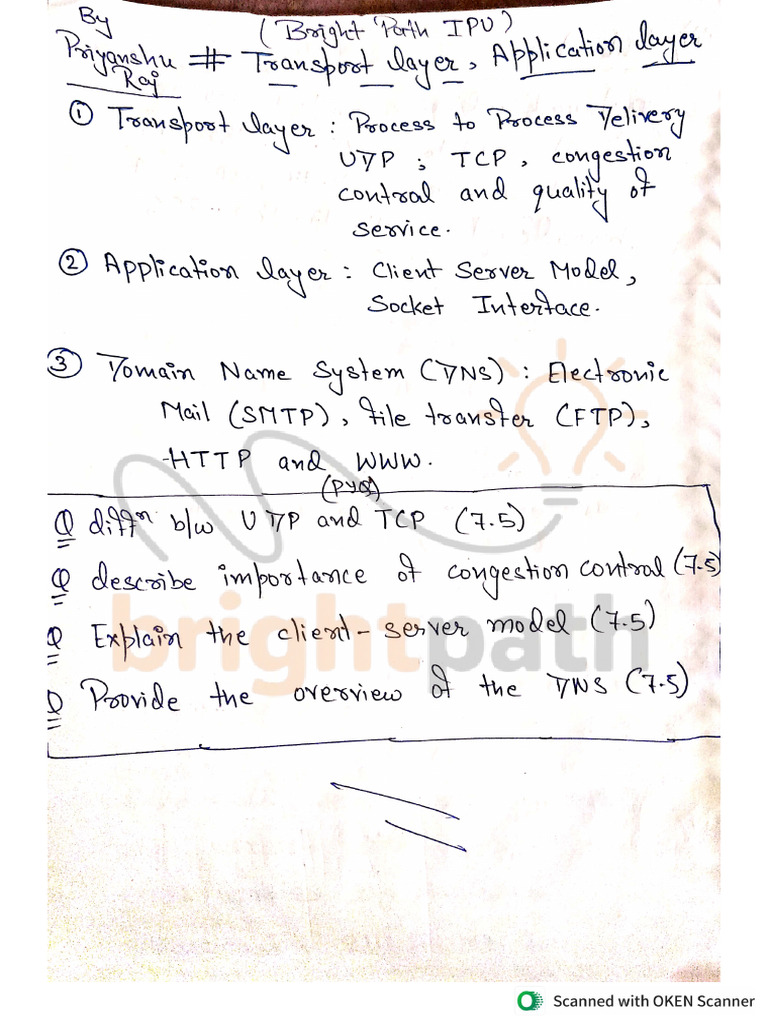 By
Priyanshu
Raj
(Bright Path IPU)
# Transport layer, Application layer
① Transport layer : Process to Process Delivery
UDP ; TCP, congestion
control and quality of
service.
② Application layer : Client Server Model,
Socket Interface.
③ Domain Name System (DNS) : Electronic
Mail (SMTP), File transfer (FTP),
HTTP and WWW.
(PYQ)
Q diffⁿ b/w UDP and TCP (7.5)
Q describe importance of congestion control (7.5)
Q Explain the client-server model (7.5)
Q Provide the overview of the DNS (7.5)
brightpath
Scanned with OKEN Scanner